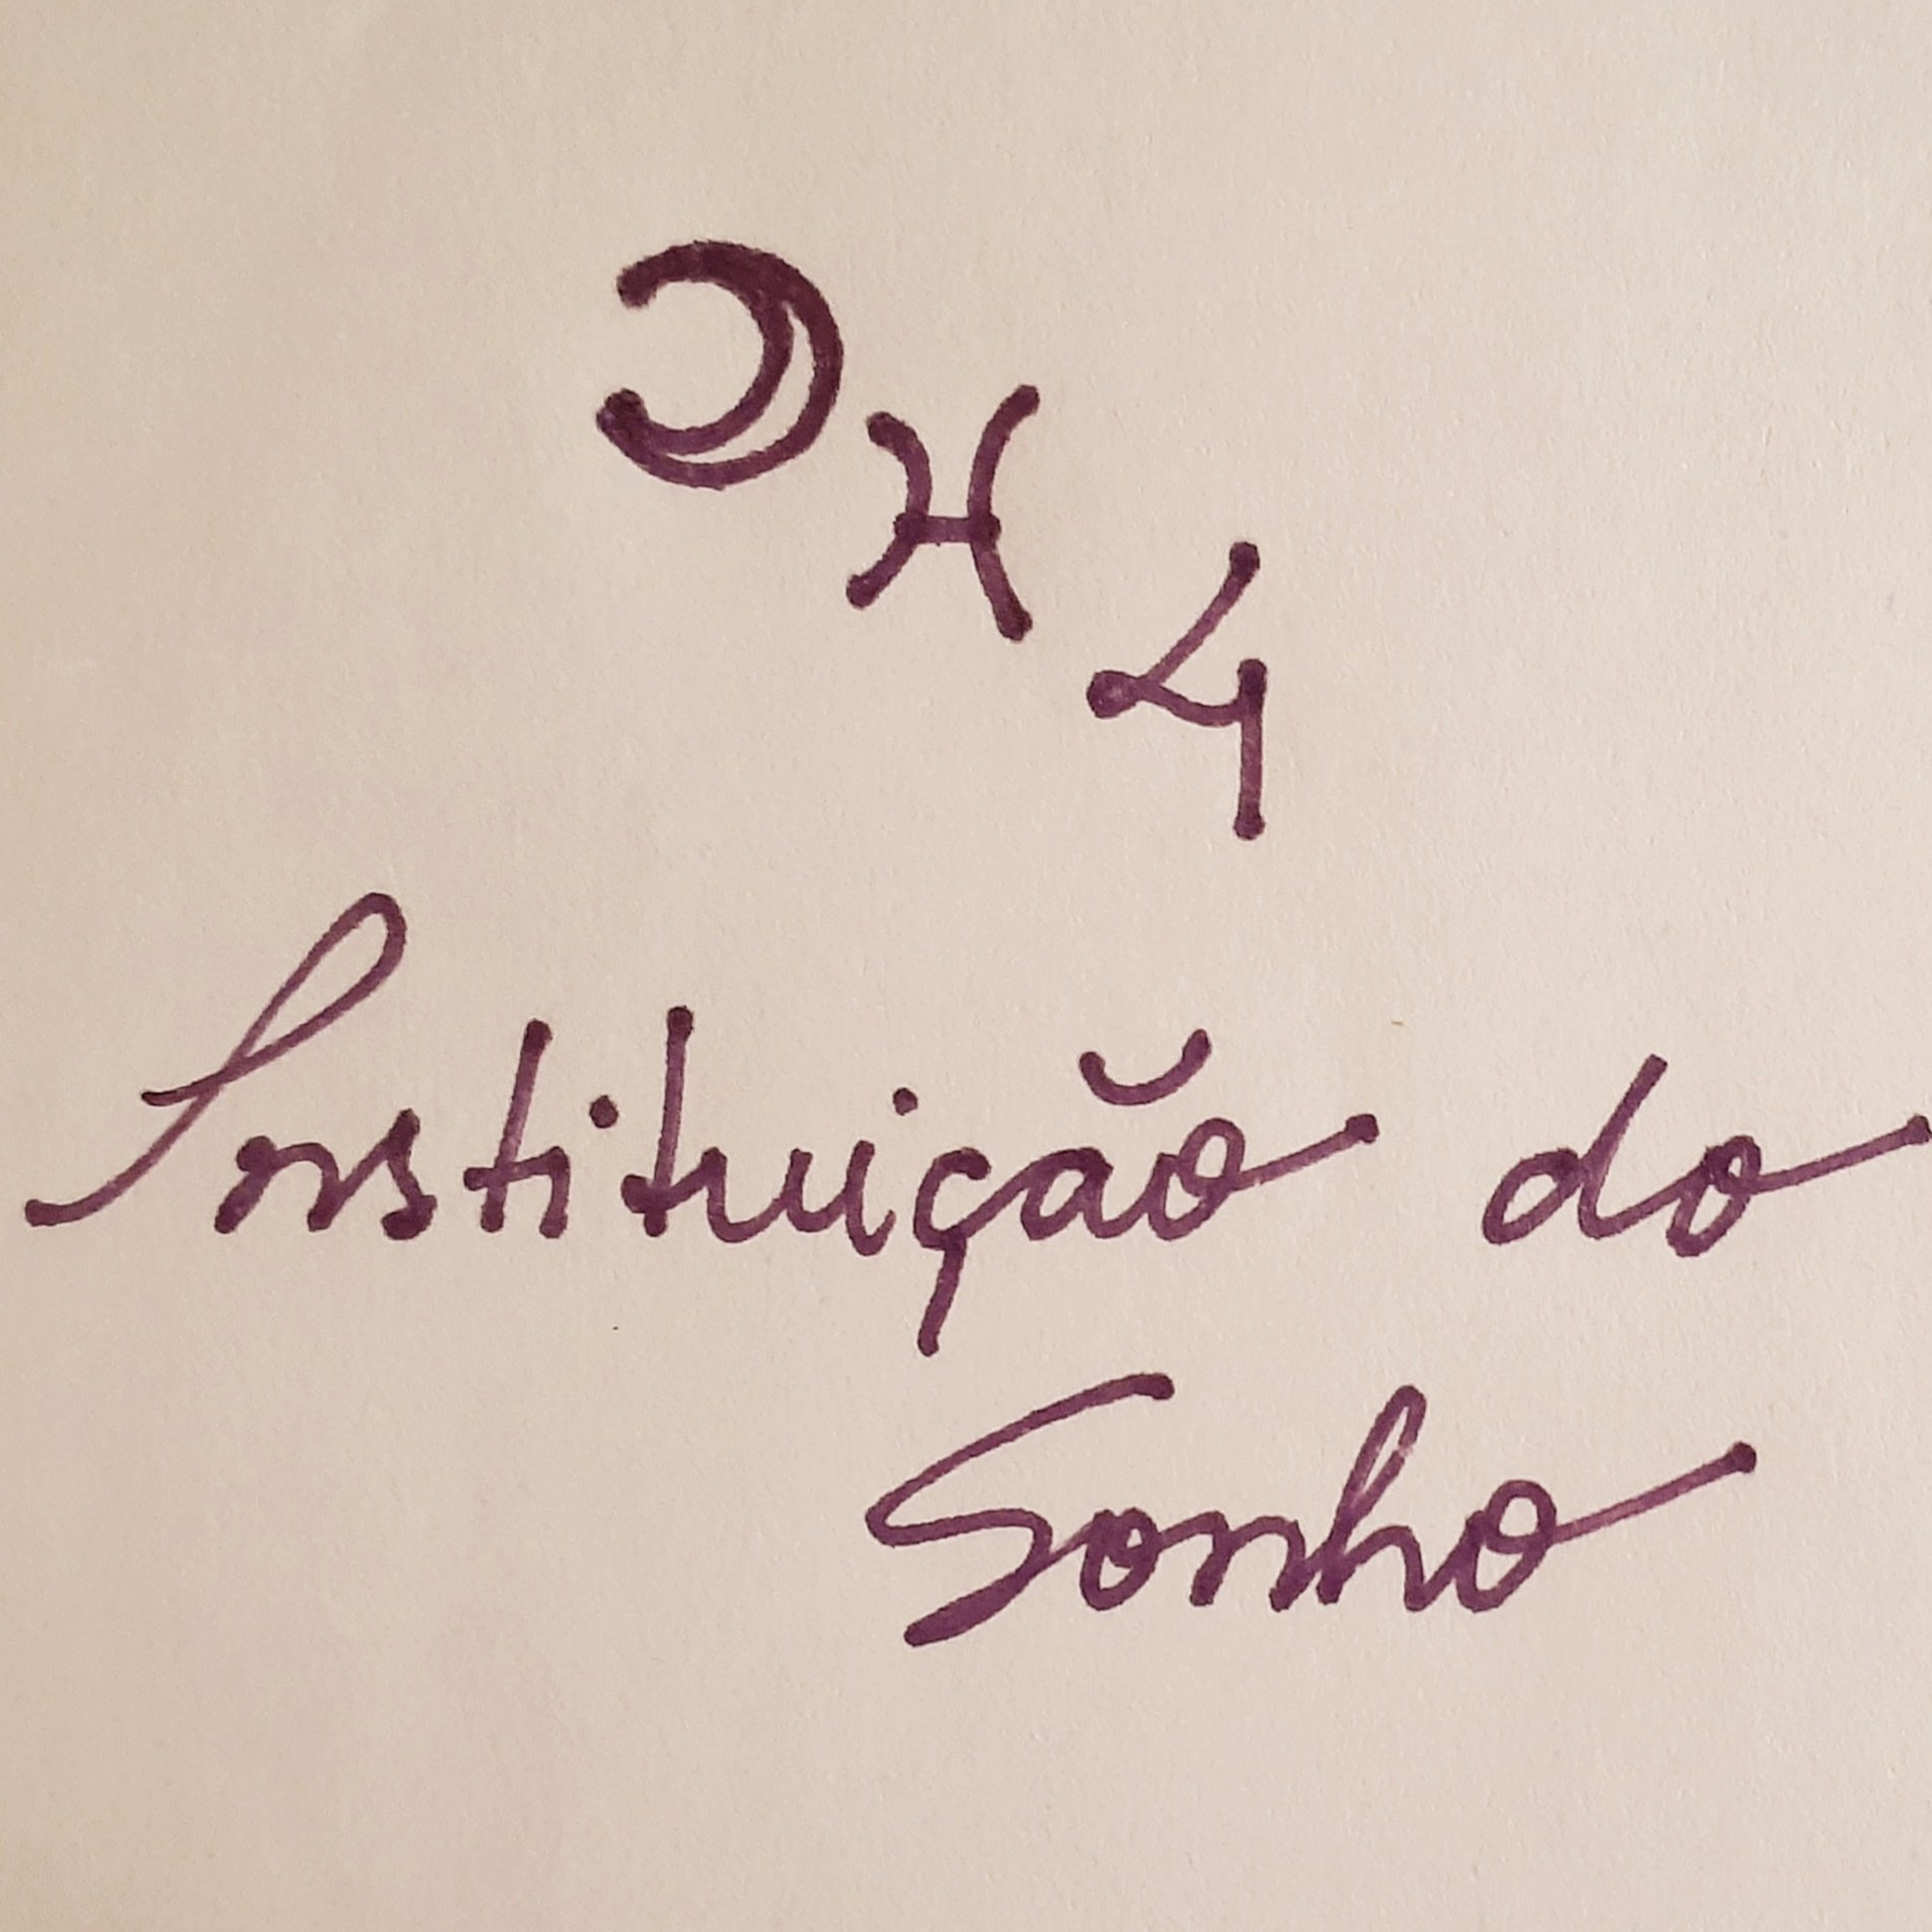 ☽ ♓ 4
Instituição do
Sonho